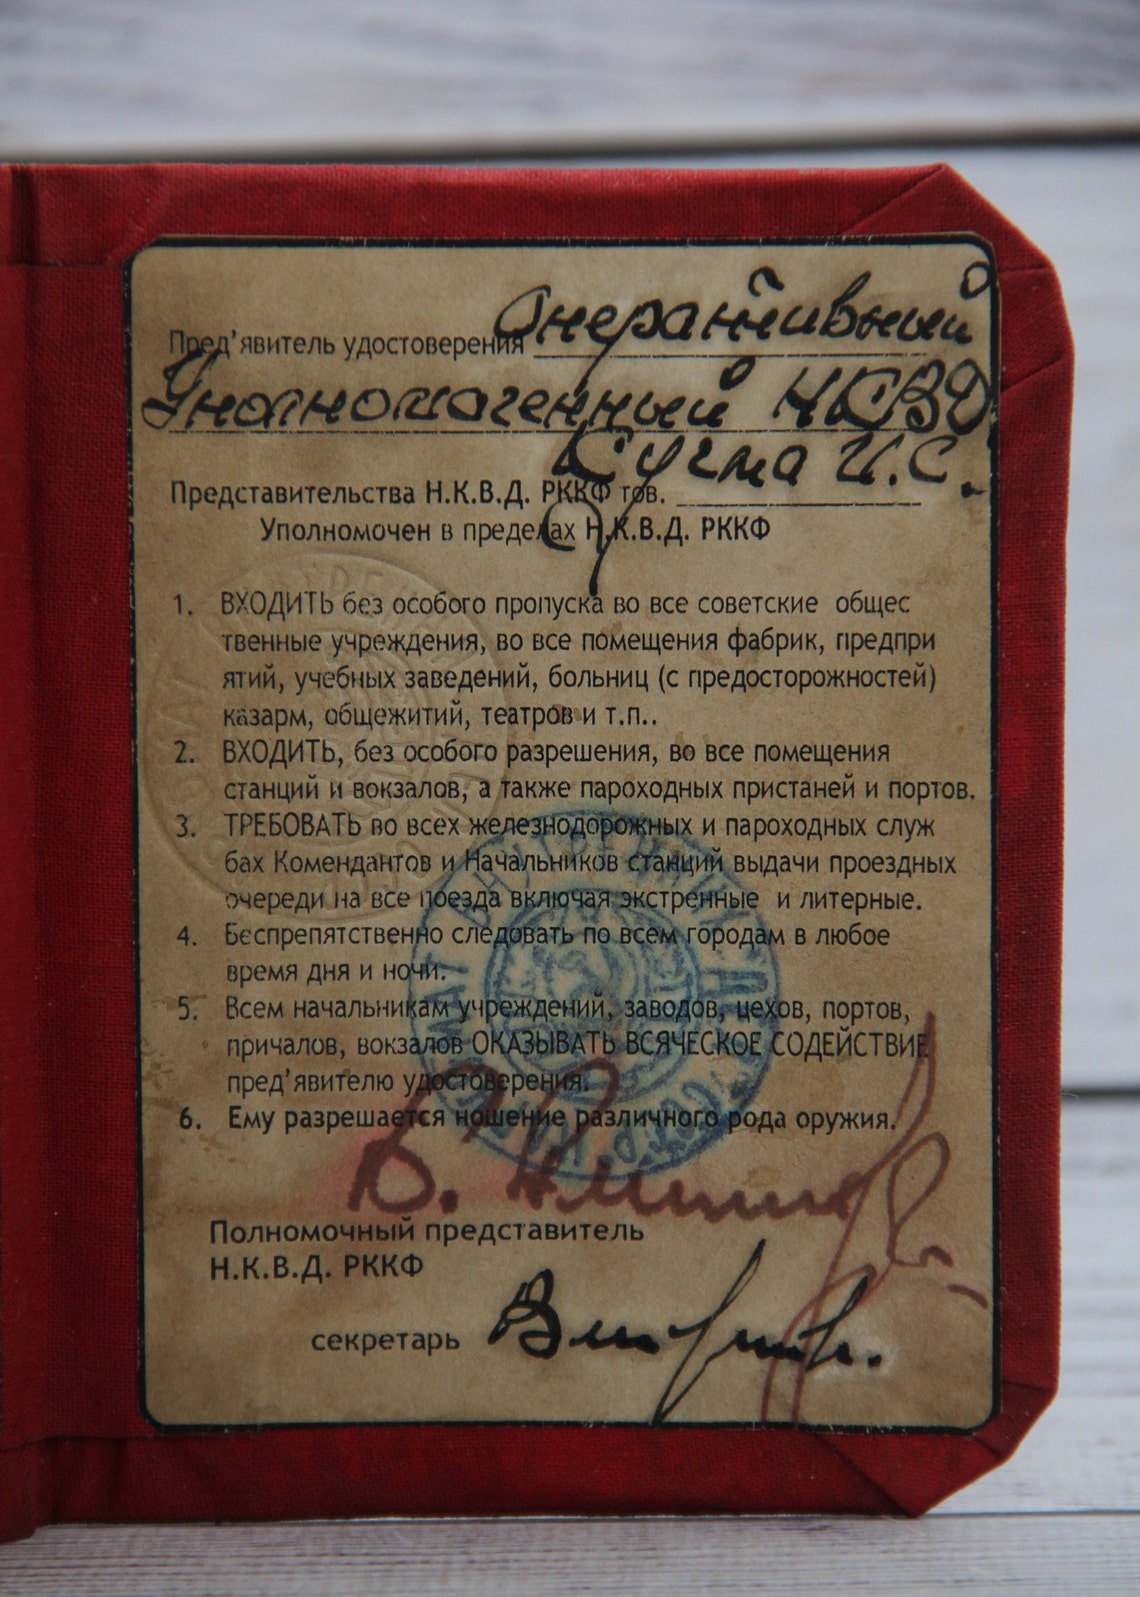 Пред'явитель удостоверения Оперативный
Уполномоченный НКВД
Кучма И.С.
Представительства Н.К.В.Д. РККФ тов.
Уполномочен в пределах Н.К.В.Д. РККФ
1. ВХОДИТЬ без особого пропуска во все советские общес
твенные учреждения, во все помещения фабрик, предпри
ятий, учебных заведений, больниц (с предосторожностей)
казарм, общежитий, театров и т.п..
2. ВХОДИТЬ, без особого разрешения, во все помещения
станций и вокзалов, а также пароходных пристаней и портов.
3. ТРЕБОВАТЬ во всех железнодорожных и пароходных служ
бах Комендантов и Начальников станций выдачи проездных
очереди на все поезда включая экстренные и литерные.
4. Беспрепятственно следовать по всем городам в любое
время дня и ночи.
5. Всем начальникам учреждений, заводов, цехов, портов,
причалов, вокзалов ОКАЗЫВАТЬ ВСЯЧЕСКОЕ СОДЕЙСТВИЕ
пред'явителю удостоверения.
6. Ему разрешается ношение различного рода оружия.
Полномочный представитель
Н.К.В.Д. РККФ
секретарь